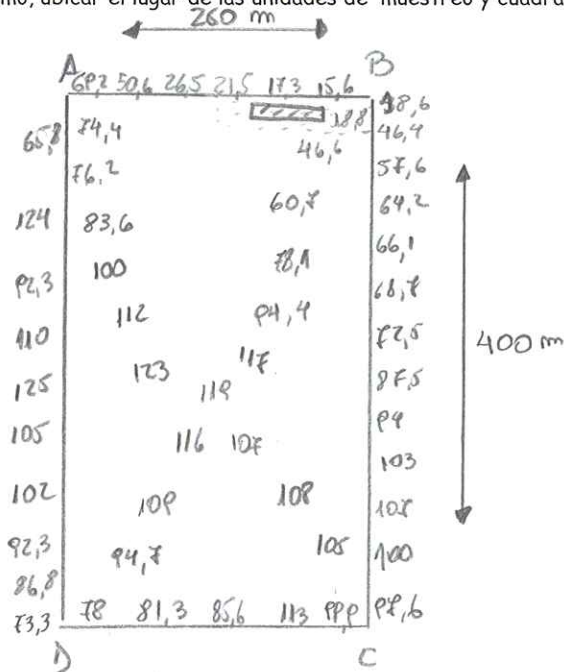 mo, ubicar el lugar de las unidades de muestreo y cuadra
260 m
A B
69,2 50,6 26,5 21,5 17,3 15,6
18,6
65,8 74,4 18,8 46,4
46,6
76,2 57,6
60,7 64,2
124 83,6
66,1
100 78,1
92,3 68,7
112 94,4
110 72,5 400 m
117
123 87,5
125 119
94
105 116 107
103
102 109 108 107
92,3 94,7 105 100
86,8
73,3 78 81,3 85,6 113 99,9 97,6
D C